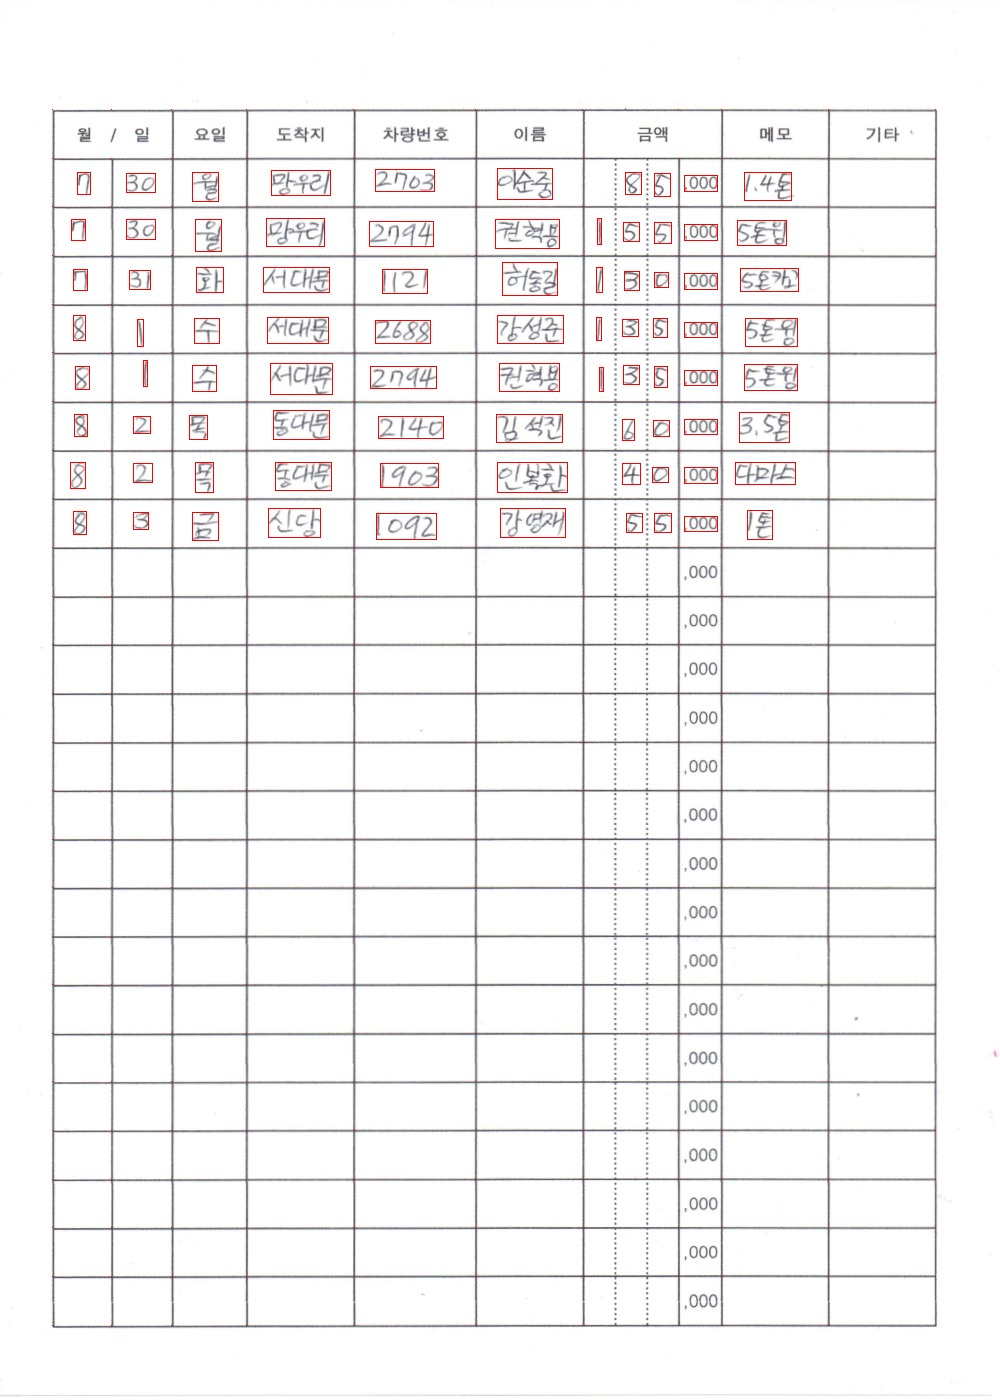 월 / 일 요일 도착지 차량번호 이름 금액 메모 기타
7 30 월 망우리 2703 이순중 85,000 1.4톤
7 30 월 망우리 2794 권혁봉 155,000 5톤윙
7 31 화 서대문 1121 허동길 130,000 5톤카고
8 1 수 서대문 2688 강성준 135,000 5톤윙
8 1 수 서대문 2794 권혁봉 135,000 5톤윙
8 2 목 동대문 2140 김석진 60,000 3.5톤
8 2 목 동대문 1903 인복환 40,000 다마스
8 3 금 신당 1092 강영재 55,000 1톤
,000
,000
,000
,000
,000
,000
,000
,000
,000
,000
,000
,000
,000
,000
,000
,000